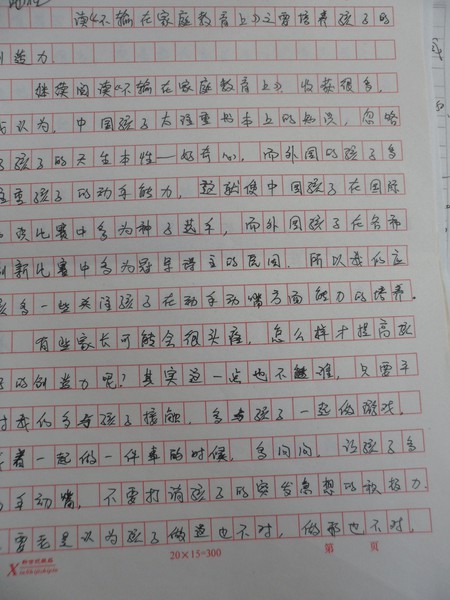 读《不输在家庭教育上》之要培养孩子的
创造力
继续阅读《不输在家庭教育上》收获很多,
我认为,中国孩子太注重书本上的知识,忽略
了孩子的天生本性—好奇心,而外国的孩子多
注重孩子的动手能力,这就使中国孩子在国际
比赛中多为种子选手,而外国孩子在各种
创新比赛中多为冠军得主的原因.所以我们应
该多一些关注孩子在动手动嘴方面能力的培养.
有些家长可能会很头疼,怎么样才提高孩
子的创造力呢?其实这一点也不难,只要平
时我们多与孩子接触,多与孩子一起做游戏,
一起做一件事的时候,多问问,让孩子多
动手动嘴,不要打消孩子的突发奇想的积极力.
要老是认为孩子做这也不对,做那也不对,
20×15=300
第 页